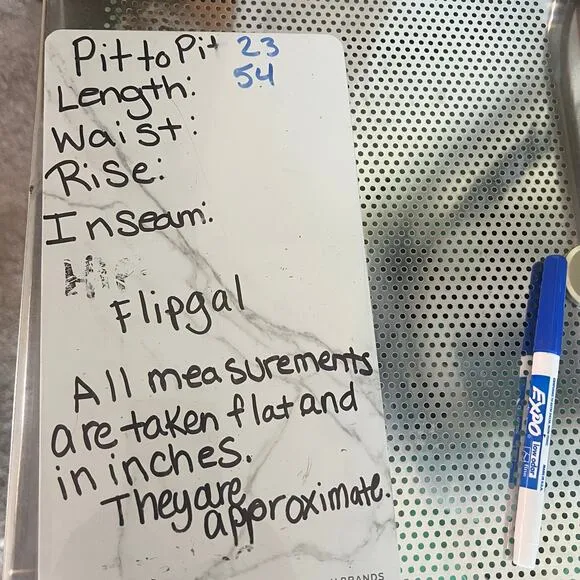 Pit to Pit 23
Length: 54
Waist:
Rise:
Inseam:
Flipgal
All measurements
are taken flat and
in inches.
They are
approximate.
EXPO
low odor
fine
BRANDS